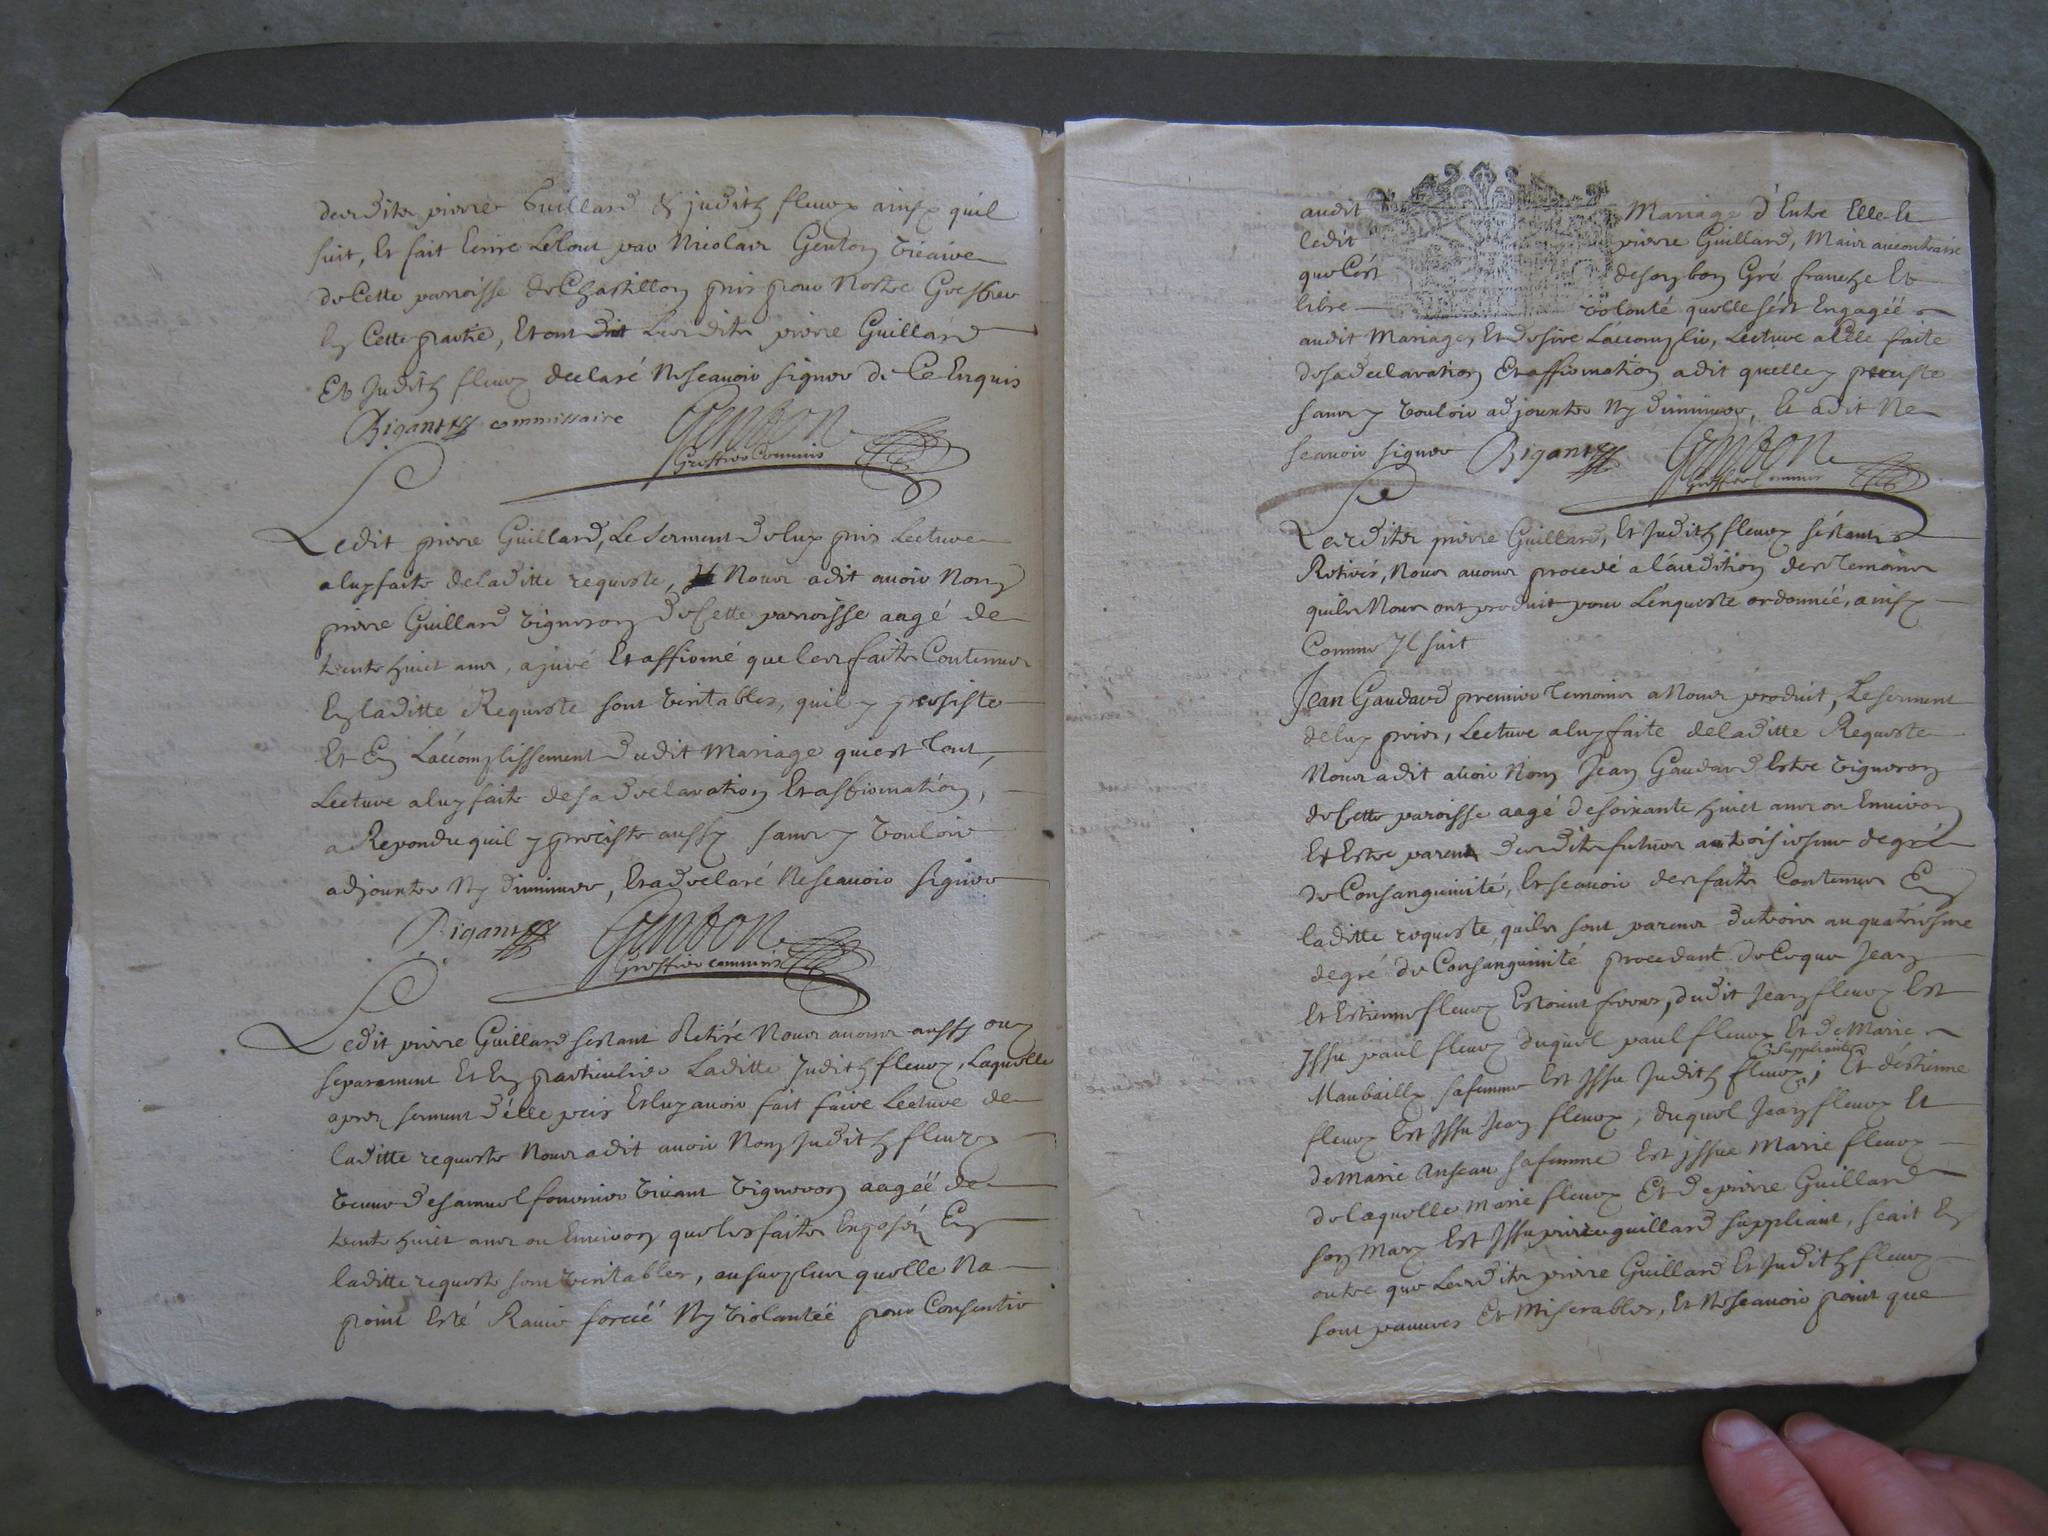 desdites pierre Guillard & judith fleury ainsy quil
suit, Et fait Ecrire Letout par Nicolas Genton vicaire
de Cette parroisse de Chastillon pris pour Nostre Greffier
En Cette partie, Et ont dit Lesdits pierre Guillard
Et Judith fleury declaré Nescauoir signer de Ce Enquis
Bigant commissaire Genton
Greffier Commis
Ledit pierre Guillard, Le Serment deluy pris Lecture
aluy faite deladitte requeste, Nous adit auoir Nom
pierre Guillard vigneron de Cette parroisse aagé de
trente huict ans, ajuré Et affirmé que les faits Contenus
En laditte Requeste sont veritables, quil y persiste
Et En L'accomplissement dudit Mariage qui est Tout,
Lecture aluy faite desa declaration Et affirmation,
a Repondu quil y preciste aussy sans y vouloir
adjouster Ny diminuer, Et a declaré Nescauoir signer
Bigant Genton
Greffier commis
Ledit pierre Guillard sestant Retiré Nous auons aussy ouy
separement Et En particulier Laditte Judith fleury, Laquelle
apres serment d'elle pris Et luy auoir fait faire Lecture de
laditte requeste Nous adit auoir Nom Judith fleury
veuue desamuel fournier viuant vigneron aagéé de
trente huict ans ou Enuiron que les faits Exposéz En
laditte requeste sont veritables, ausurplus quelle Na
point Esté Rauie forcéé Ny violantéé pour Consentir
audit Mariage d'Entre Elle Et
ledit pierre Guillard, Mais aucontraire
que Cest desonbon Gré franche Et
libre volonté quelle sest Engagéé
audit Mariage, Et desire L'accomplir, Lecture aElle faite
desadeclaration Et affirmation adit quelle y preciste
sans y vouloir adjouster Ny diminuer, Et adit Ne
scauoir signer Bigant Genton
Greffier Commis
Lesdites pierre Guillard, Et Judith fleury sestants
Retirés, Nous auons procedé a l'audition des Temoins
quils Nous ont produit pour L'enqueste ordonnéé, ainsy
Comme Jl suit
Jean Gaudard premier Temoins aNous produit, Le serment
deluy pris, Lecture aluy faite deladitte Requeste
Nous adit auoir Nom Jean Gaudard Estre vigneron
de Cette paroisse aagé desoixante huict ans ou Enuiron
Et Estre parent desdits futurs au troisiesme degré
de Consanguinité, Et scauoir des faits Contenus En
laditte requeste, quils sont parens du trois au quatriesme
degré de Consanguinité procedant de Ceque Jean
Et Estienne fleury Estoient freres, dudit Jean fleury Est
Jssu paul fleury duquel paul fleury Et de Marie
Maubailly safemme Est Jssu Judith fleury suppliante; Et d'éstienne
fleury Est Jssu Jean fleury, duquel Jean fleury Et
de Marie Anseau safemme Est jssue Marie fleury
de laquelle Marie fleury Et de pierre Guillard
son Mary Est Jssu pierre guillard suppliant, scait En
outre que Lesdits pierre Guillard Et Judith fleury
sont pauures Et Miserables, Et Nescauoir point que